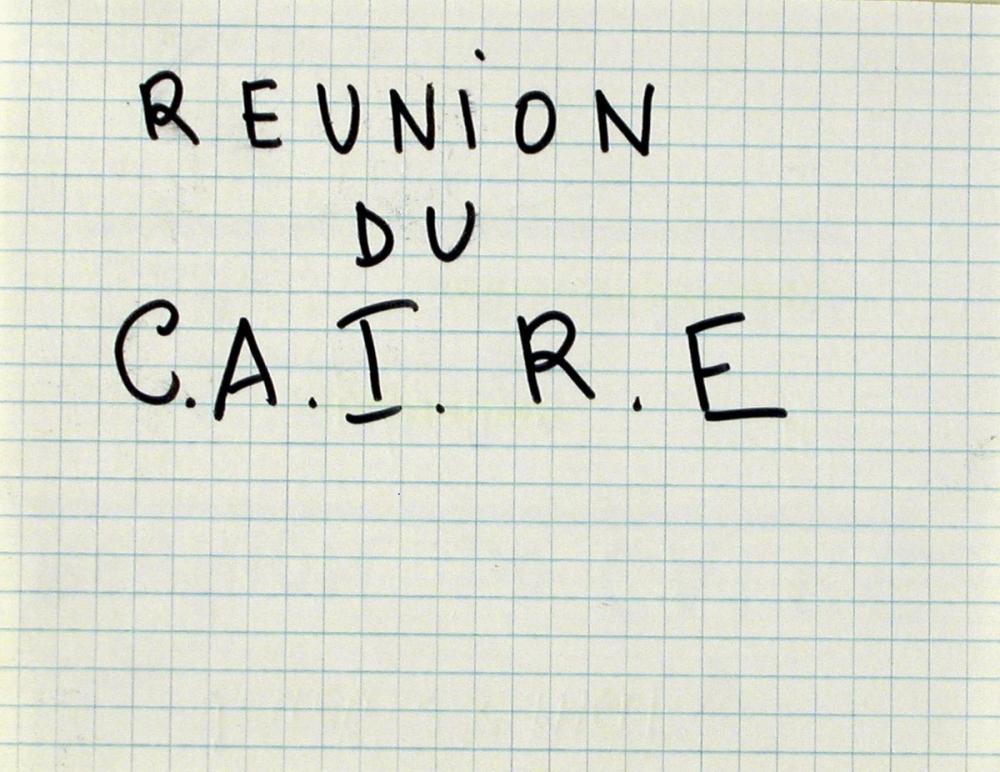 REUNiON
DU
C.A.I.R.E